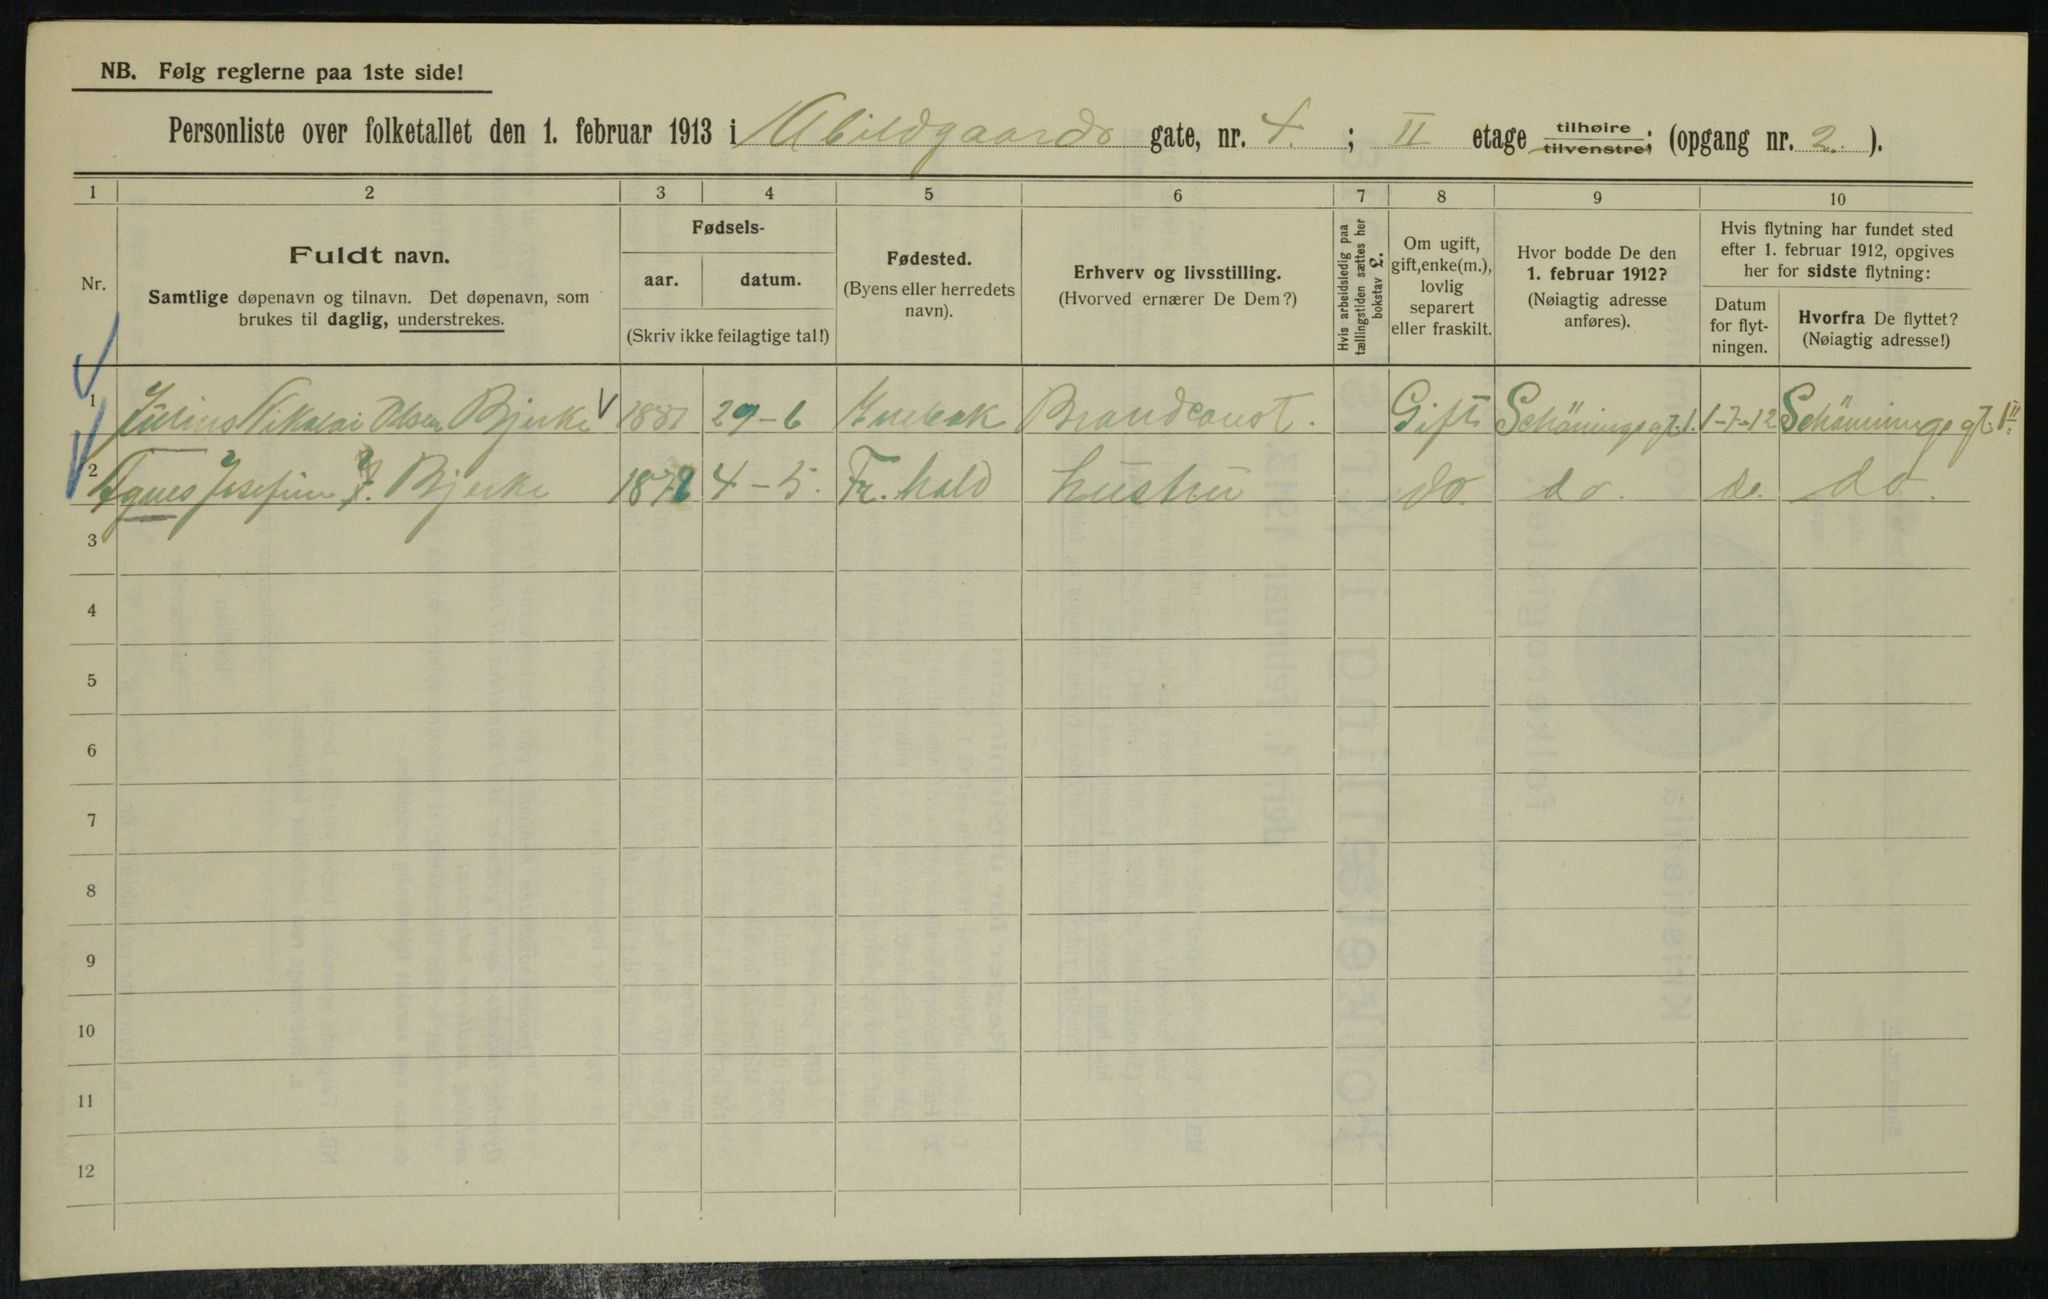 NB. Følg reglerne paa 1ste side!
Personliste over folketallet den 1. februar 1913 i Abildgaards gate, nr. 4. ; II etage tilhøire tilvenstre; (opgang nr. 2. ).
1 2 3 4 5 6 7 8 9 10
Nr.
Fuldt navn.
Samtlige døpenavn og tilnavn. Det døpenavn, som
brukes til daglig, understrekes.
Fødsels-
aar. datum.
(Skriv ikke feilagtige tal!)
Fødested.
(Byens eller herredets
navn).
Erhverv og livsstilling.
(Hvorved ernærer De Dem?)
Hvis arbeidsledig paa
tællingstiden sættes her
bokstav L.
Om ugift,
gift, enke(m.),
lovlig
separert
eller fraskilt.
Hvor bodde De den
1. februar 1912?
(Nøiagtig adresse
anføres).
Hvis flytning har fundet sted
efter 1. februar 1912, opgives
her for sidste flytning:
Datum
for flyt-
ningen.
Hvorfra De flyttet?
(Nøiagtig adresse!)
1 Julius Nikolai Olsen Bjerke 1881 29-6 Enebak Brandconst. Gift Schöningsgt. 1. 1-7-12 Schöningsgt. 1 II
2 Agnes Josefine Bjerke 1872 4-5. Fr.hald Hustru do. do. do. do.
3
4
5
6
7
8
9
10
11
12